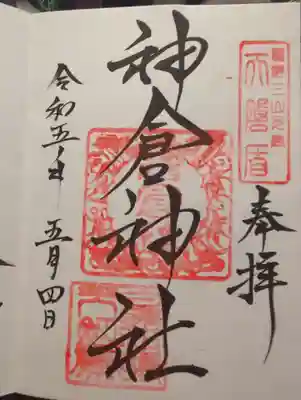 奉拝
天磐盾
神倉神社
令和五年
五月四日